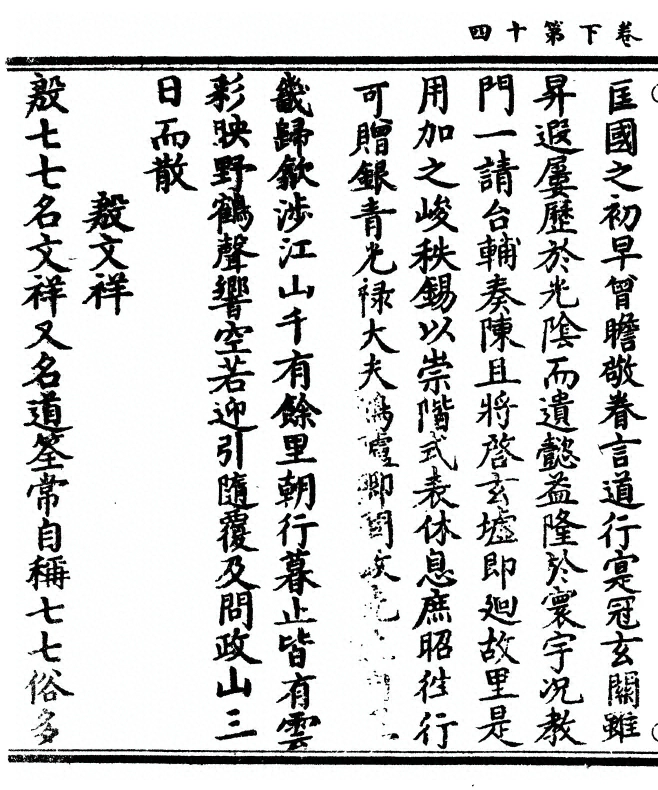 卷下第十四
匡國之初早曾瞻敬眷言道行寔冠玄關雖
昇遐屢歷於光陰而遺懿益隆於寰宇况教
門一請台輔奏陳且將啓玄墟即廻故里是
用加之峻秩錫以崇階式表休息庶昭徃行
可贈銀青光禄大夫鴻臚卿問政
幾歸歙涉江山千有餘里朝行暮止皆有雲
彩映野鶴聲響空若迎引隨覆及問政山三
日而散
殷文祥
殷七七名文祥又名道筌常自稱七七俗多